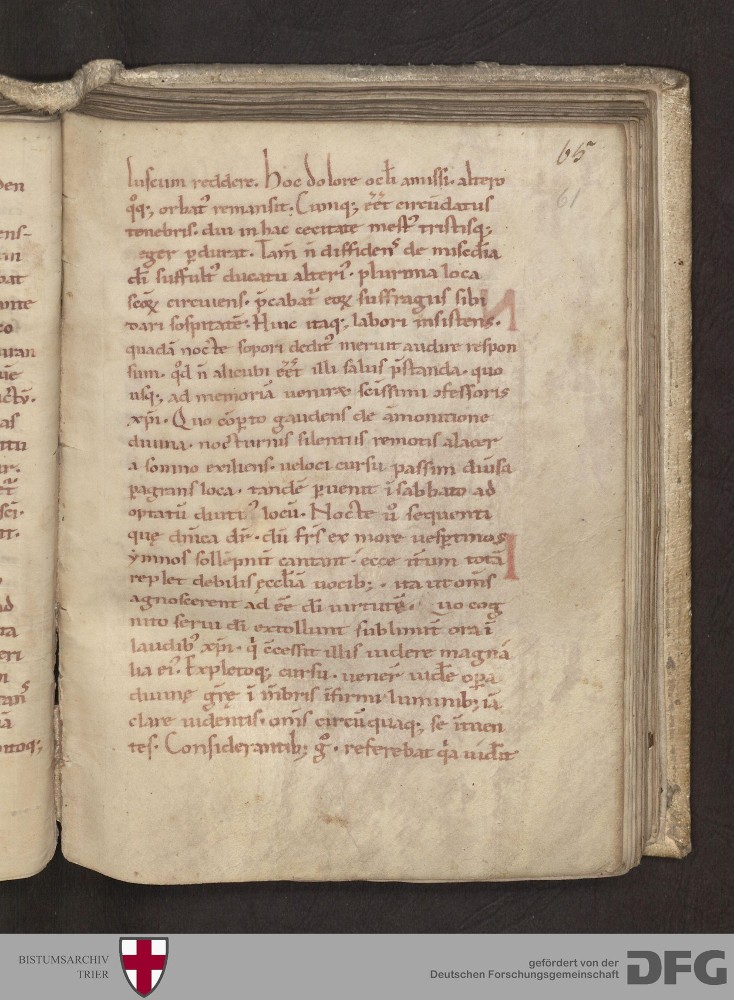 65
61
luscum reddere. hoc dolore oclī amissi. altero
q̊q;, orbat᷒ remansit. Cumq; ēēt circūdatus
tenebris. diu in hac cecitate mest᷒ tristisq;
eger p̄durat. Tam̄ n̄ diffidens᷒ de mis̄cdia
dī suffult᷒ ducatu alteri᷒. plurima loca
scōꝝ circuiens. p̄cabat᷒ eoꝝ suffragiis sibi
dari sospitatē. Huic itaq;, labori insistens.
quadā nocte sopori dedit᷒ meruit audire respon
sum. qd̄ n̄ alicubi ēēt illi salus p̄standa. quo
usq; ad memoriā veniret scissimi ꝯfessoris
xp̄i. Quo cōp̄to gaudens de āmonitione
diuina. nocturnis silentiis remotis alacer
a somno exiliens. ueloci cursu passim diu̅sa
p̄agrans loca. tandē p̄uenit ī sabbato ad
optatū diuti᷒ locū. Nocte u̅ sequenti
quę dn̄ica dr̄. dū fr̄s ex more uesp̄tinos
ẏmnos sollēpnit̄ cantant. ecce it̄um totā
replet debilis ęcclīā uocib;. ita ut om̄s
agnoscerent ad ēē dī uirtutē. Quo cog
nito serui dī extollunt sublimit̄ ora ī
laudib᷒ xp̄i. qi c̄cessit illis uidere magnā
lia ei᷒. Expletoq; cursu. uener̄ uidē op̄a
diuinę gr̄ę ī m̄bris īfirmi luminib; iā
clare uidentis. om̄s circūquaq; se ītuen
tes. Considerantib; g̊. referebat qa uid̄it
BISTUMSARCHIV
TRIER
gefördert von der
Deutschen Forschungsgemeinschaft
DFG